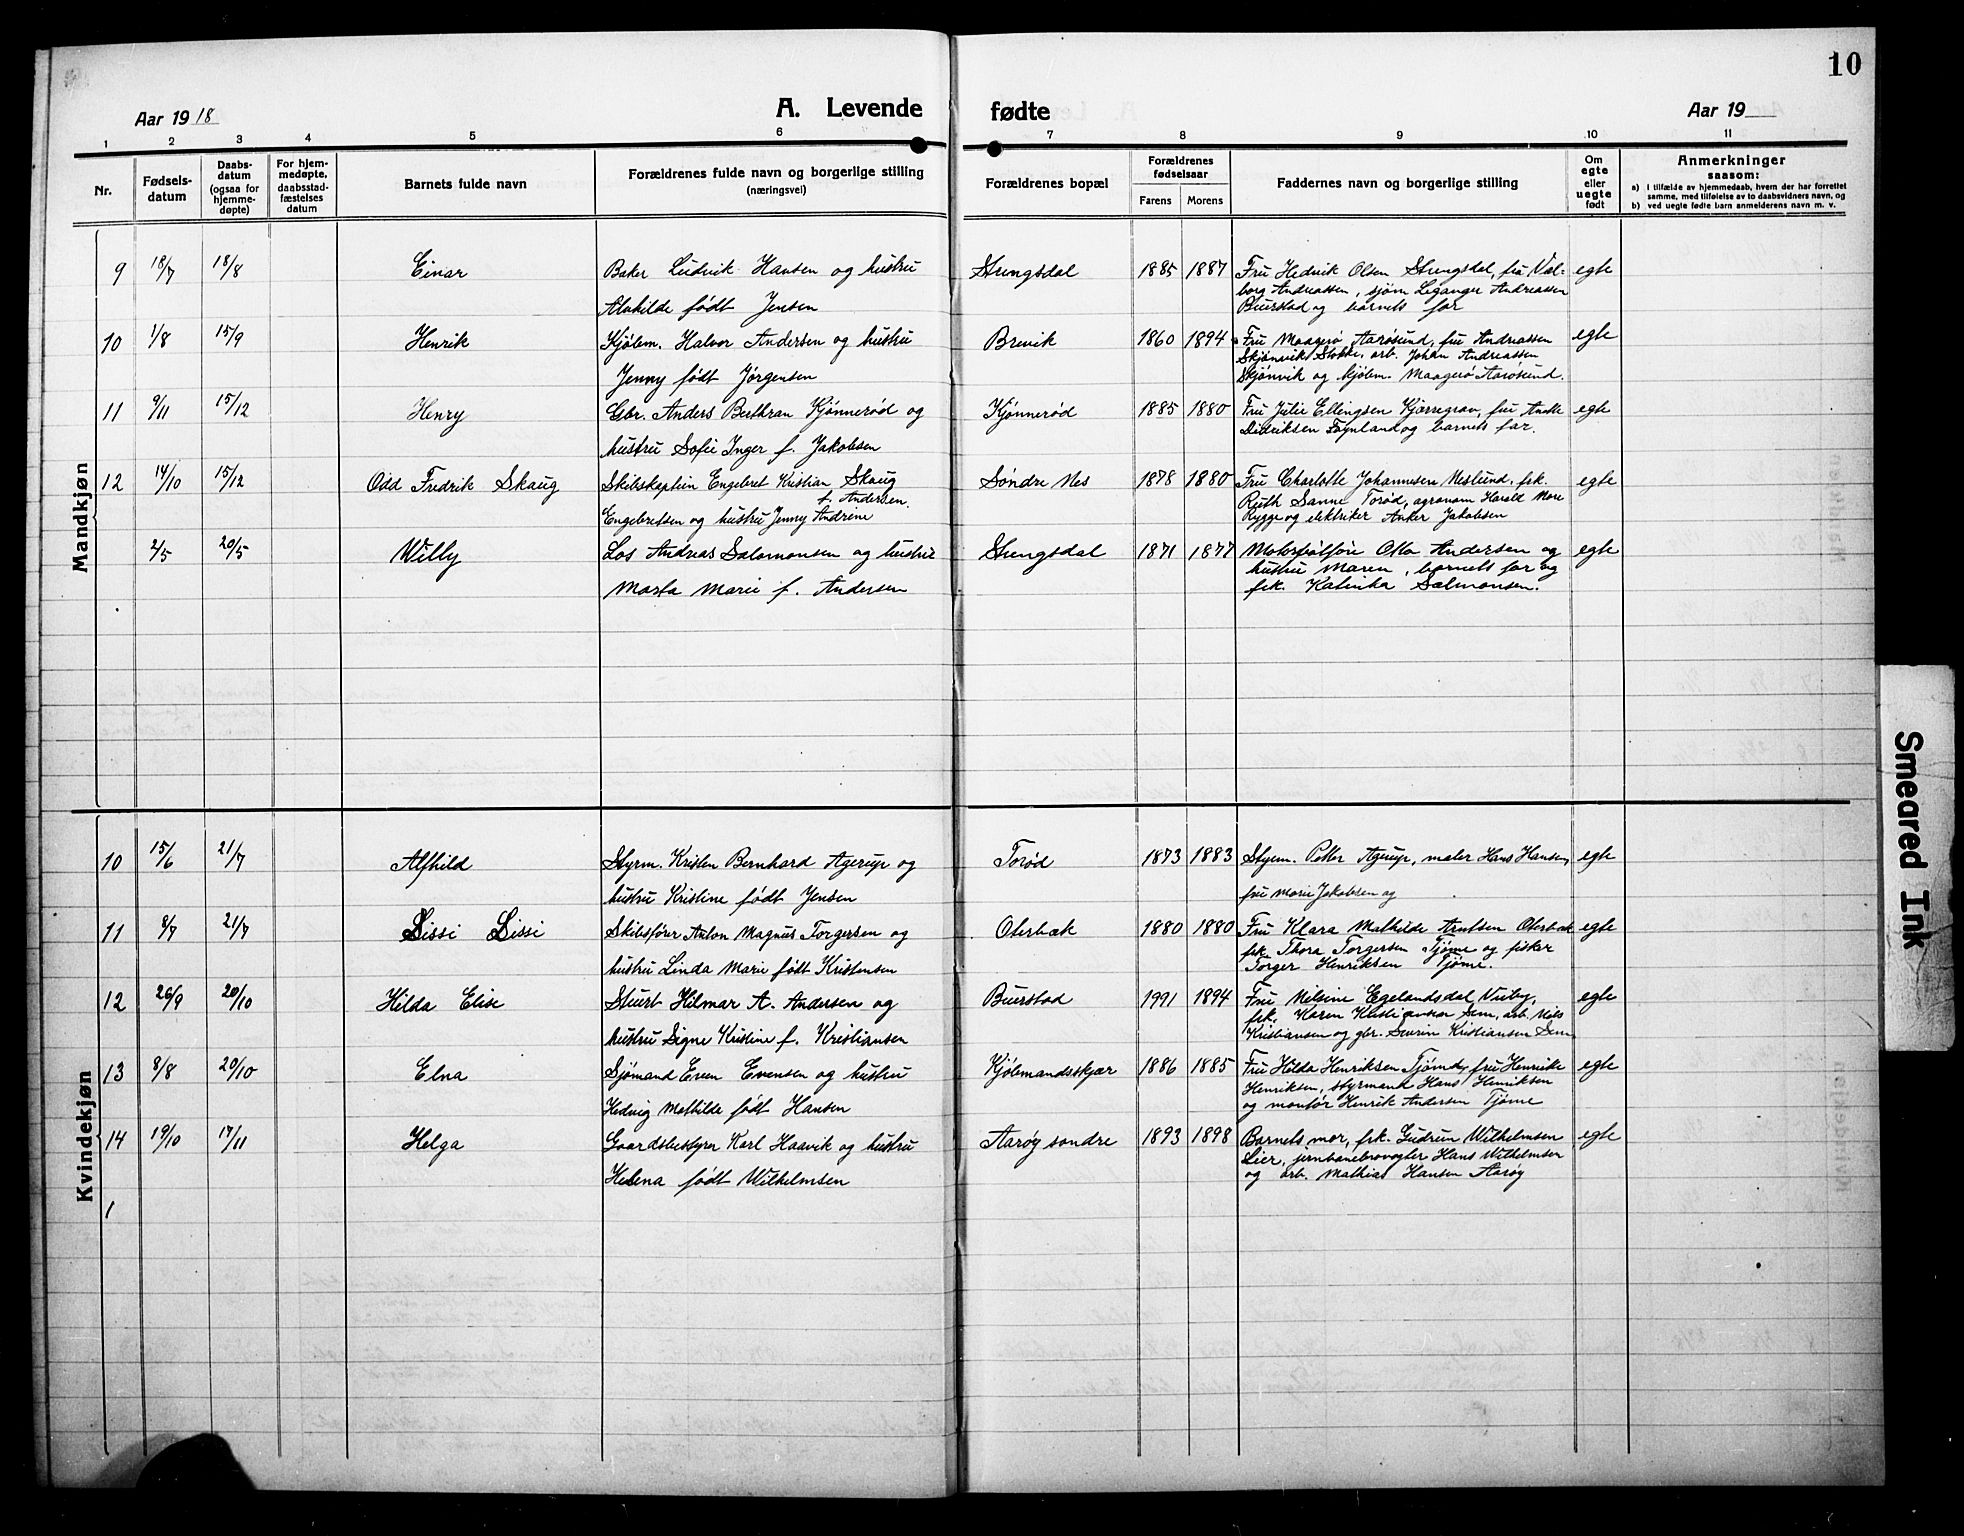 10
Aar 1918
A. Levende fødte
Aar 19
1 2 3 4 5 6 7 8 9 10 11
Nr.
Fødsels-
datum
Daabs-
datum
(ogsaa for
hjemme-
døpte)
For hjem-
medøpte,
daabsstad-
fæstelses
datum
Barnets fulde navn
Forældrenes fulde navn og borgerlige stilling
(næringsvei)
Forældrenes bopæl
Forældrenes
fødselsaar
Farens Morens
Faddernes navn og borgerlige stilling
Om
egte
eller
uegte
født
Anmerkninger
saasom:
a) i tilfælde av hjemmedaab, hvem der har forrettet
samme, med tilføielse av to daabsvidners navn, og
b) ved uegte fødte barn anmelderens navn m. v.
Mandkjøn
9 18/7 18/8 Einar Baker Ludvik Hansen og hustru Strengsdal 1885 1887 Fru Hedvik Olsen Strengsdal, fru Val- egte
Alvhilde født Jensen
borg Andreassen, sjøm Leganger Andreassen
Buerstad og barnets far
10 1/8 15/9 Henrik Kjølem. Halvor Andersen og hustru Brevik 1860 1894 Fru Maagerø Aarøsund, fru Andreassen egte
Jenny født Jørgensen
Skjønvik Stokke, arb. Johan Andreassen
Skjønvik og kjølem. Maagerø Aarøsund.
11 9/11 15/12 Henry Gbr. Anders Berthran Kjønnerød og Kjønnerød 1885 1880 Fru Julie Ellingsen Kjærregrav, fru Anette egte
hustru Sofie Inger f. Jakobsen
Didriksen Føynland og barnets far.
12 14/10 15/12 Odd Fredrik Skaug Skibskaptein Engebret Kristian Skaug Søndre Nes 1878 1880 Fru Charlotte Johannesen Neslund, frk. egte
f. Andersen.
Engebretsen og hustru Jenny Andrine
Ruth Sanne Torød, agronom Harald More
Rygge og elektriker Anker Jakobsen
2/5 20/5 Willy Los Andreas Salomonsen og hustru Strengsdal 1871 1877 Motorbåtfører Otto Andersen og egte
Marta Marie f. Andersen
hustru Maren, barnets far og
frk. Katinka Salmonsen.
Kvindekjøn
10 15/6 21/7 Alfhild Styrm. Kristen Bernhard Agerup og Torød 1873 1883 Styrm. Petter Agerup, maler Hans Hansen, egte
hustru Kristine født Jensen
fru Marie Jakobsen og
11 8/7 21/7 Sissi Lissi Skibsfører Anton Magnus Torgersen og Oterbæk 1880 1880 Fru Klara Mathilde Arntsen Oterbæk egte
hustru Linda Marie født Kristensen
frk. Thora Torgersen Tjøme og fisker
Torger Henriksen Tjøme.
12 26/9 20/10 Hilda Elise Stuert Hilmar A. Andersen og Buerstad 1991 1894 Fru Nilsine Egelandsdal Viuby, egte
hustru Signe Kristine f. Kristiansen
frk. Karen Kristiansen Sem, arb. Nils
Kristiansen og gbr. Severin Kristiansen Sem
13 8/8 20/10 Elna Sjømand Even Evensen og hustru Kjøbmandsskjær 1886 1885 Fru Hilda Henriksen Tjøme, fru Henrikke egte
Hedvig Mathilde født Hansen
Henriksen, styrmand Hans Henriksen
og montør Henrik Andersen Tjøme
14 19/10 17/11 Helga Gaardsbestyrer Karl Haavik og hustru Aarøy søndre 1893 1898 Barnets mor, frk. Gudrun Wilhelmsen egte
Helena født Wilhelmsen
Lier, jernbanebrovogter Hans Wilhelmsen
og arb. Mathias Hansen Aarøy
1
Smeared Ink